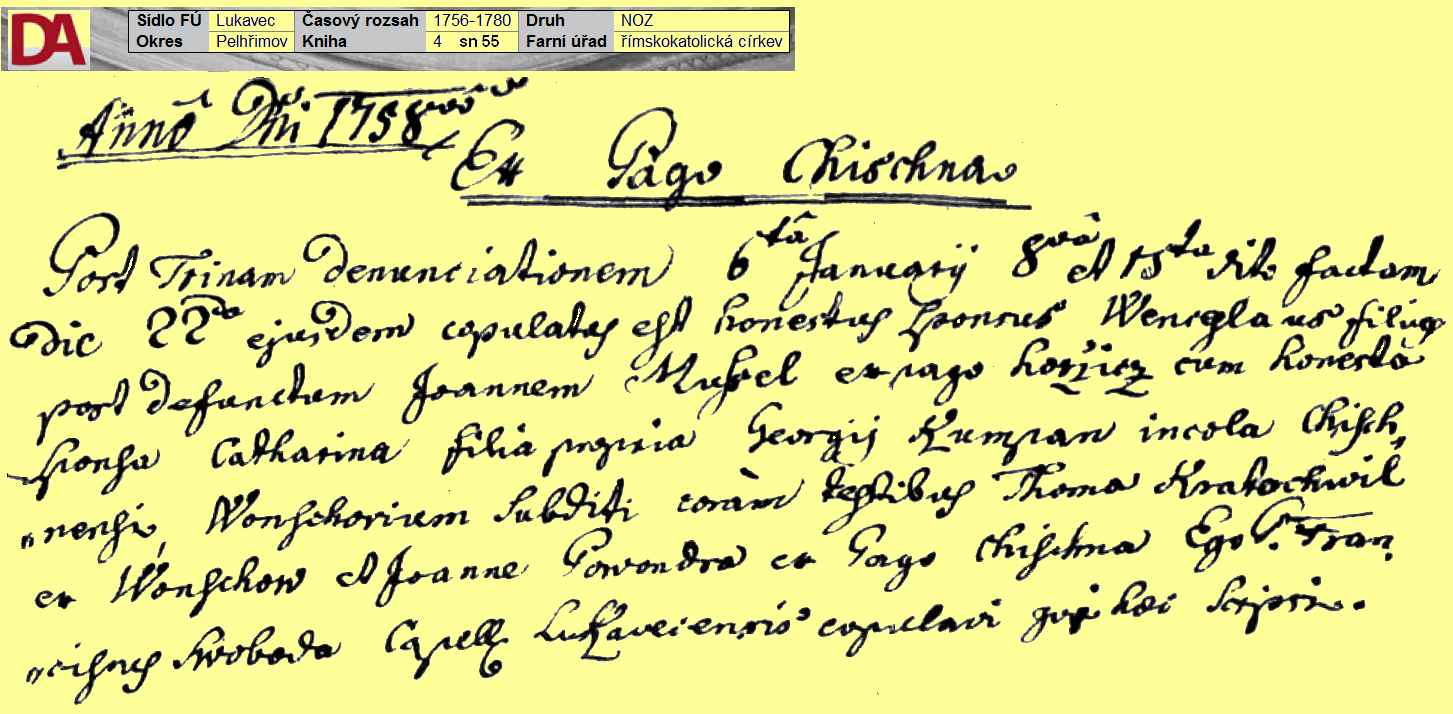 DA
Sídlo FÚ Lukavec Časový rozsah 1756-1780 Druh NOZ
Okres Pelhřimov Kniha 4 sn 55 Farní úřad římskokatolická církev
Anno Dni 1758
Ex Pago Chischna
Post Trinam Denunciationem 6ta January 8va et 15ta dito factam
Die 22da ejusdem copulatus est honestus sponsus Wenceslaus filius
post defunctum Joannem ex pago horzicz cum honesta
sponsa Catharina filia propria Georgij Rumpan incola Chisch,
„nensi, Wonschovium Subditi coràm testibus Thoma Kratochwil
ex Wonschow et Joanne Powondra ex Pago Chischna Ego P. Fran,
„ciscus Swoboda Capell Lukavecensis copulavi qui hæc Scripsi.